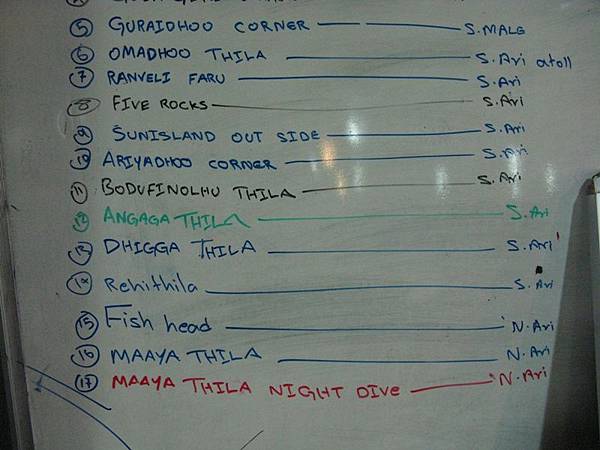 5 GURAIDHOO CORNER S.MALE
6 OMADHOO THILA S.Ari atoll
7 RANVELI FARU S.Ari
8 FIVE ROCKS S.Ari
9 SUNISLAND OUT SIDE S.Ari
10 ARIYADHOO CORNER S.Ari
11 BODUFINOLHU THILA S.Ari
12 ANGAGA THILA S.Ari
13 DHIGGA THILA S.Ari
14 Rehithila S.Ari
15 Fish head N.Ari
16 MAAYA THILA N.Ari
17 MAAYA THILA NIGHT DIVE N.Ari